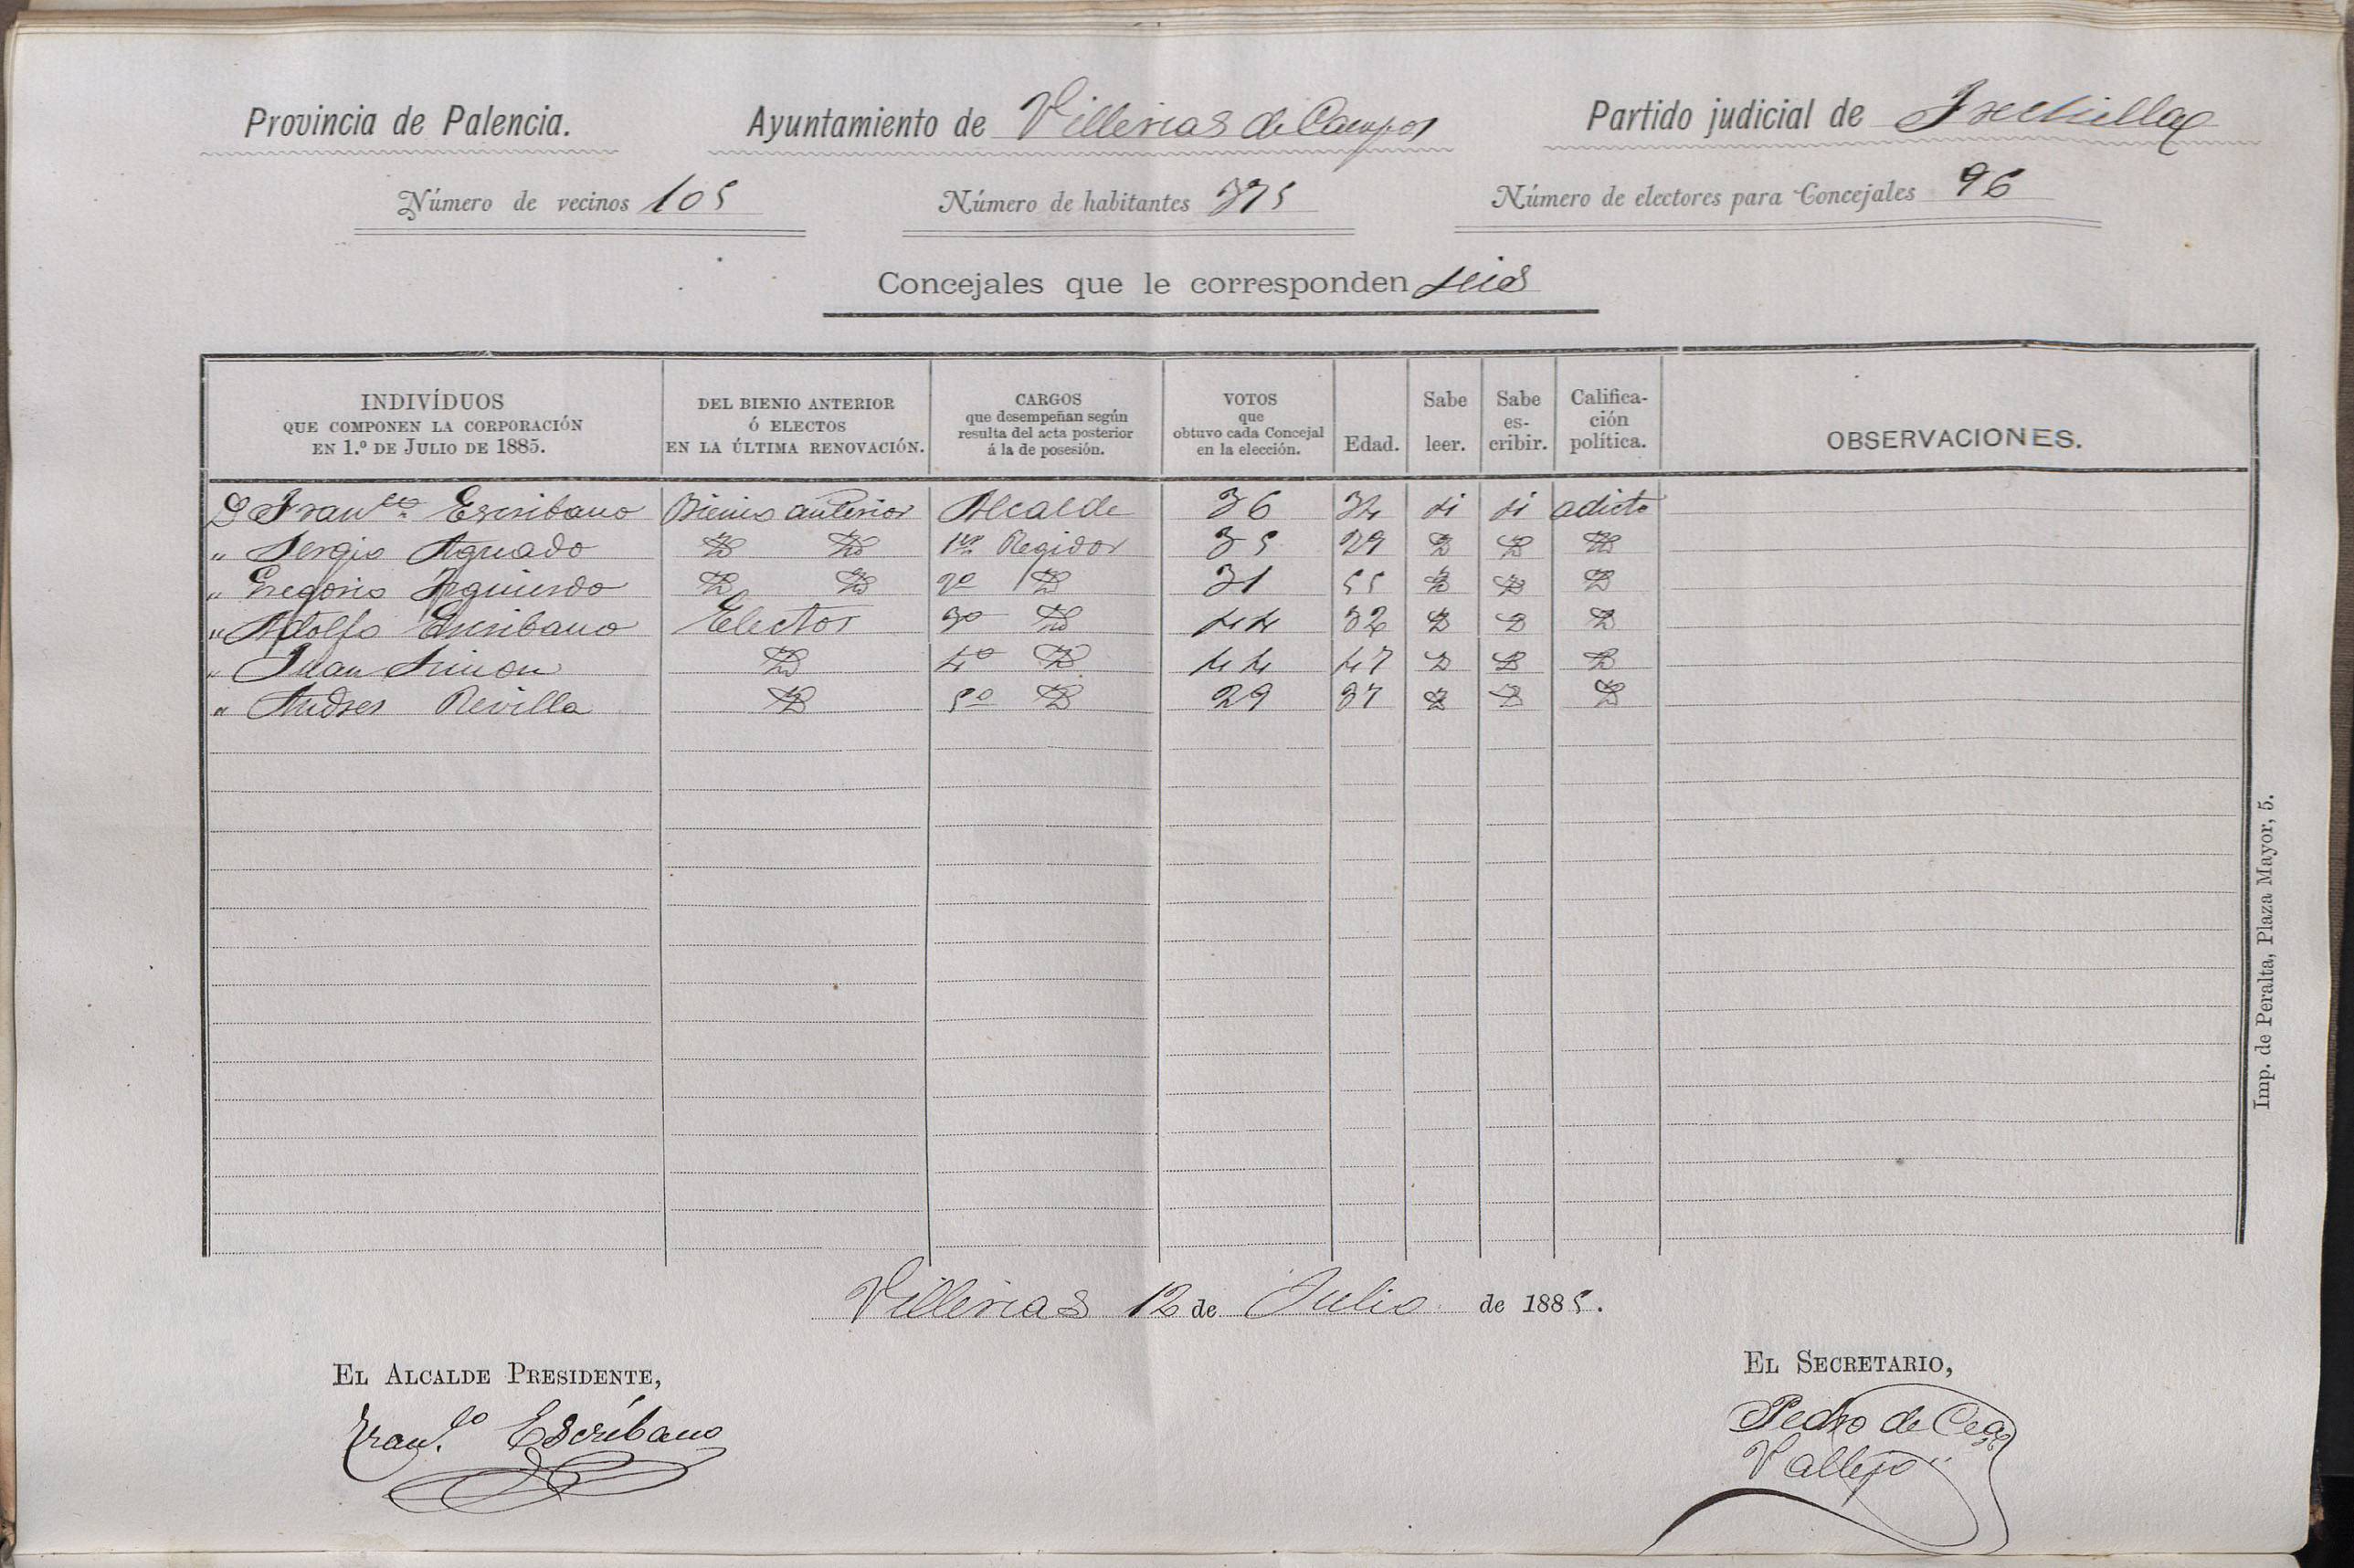 Provincia de Palencia. Ayuntamiento de Villerias de Campos Partido judicial de Frechilla
Número de vecinos 105 Número de habitantes 375 Número de electores para Concejales 96
Concejales que le corresponden seis
INDIVÍDUOS QUE COMPONEN LA CORPORACIÓN EN 1.º DE JULIO DE 1885. DEL BIENIO ANTERIOR Ó ELECTOS EN LA ÚLTIMA RENOVACIÓN. CARGOS que desempeñan según resulta del acta posterior á la de posesión. VOTOS que obtuvo cada Concejal en la elección. Edad. Sabe leer. Sabe es- cribir. Califica- ción política. OBSERVACIONES.
D Fran.co Escribano Bienio anterior Alcalde 36 34 si si adicto
" Sergio Aguado Id Id 1er Regidor 35 29 Id Id Id
" Gregorio Izquierdo Id Id 2º Id 31 55 Id Id Id
" Adolfo Escribano Electos 3º Id 44 32 Id Id Id
" Juan Simon Id 4º Id 44 47 Id Id Id
" Andres Revilla Id 5º Id 29 37 Id Id Id
Imp. de Peralta, Plaza Mayor, 5.
Villerias 12 de Julio de 1885.
EL ALCALDE PRESIDENTE, EL SECRETARIO,
Fran.co Escribano Pedro de Cea
Vallejo